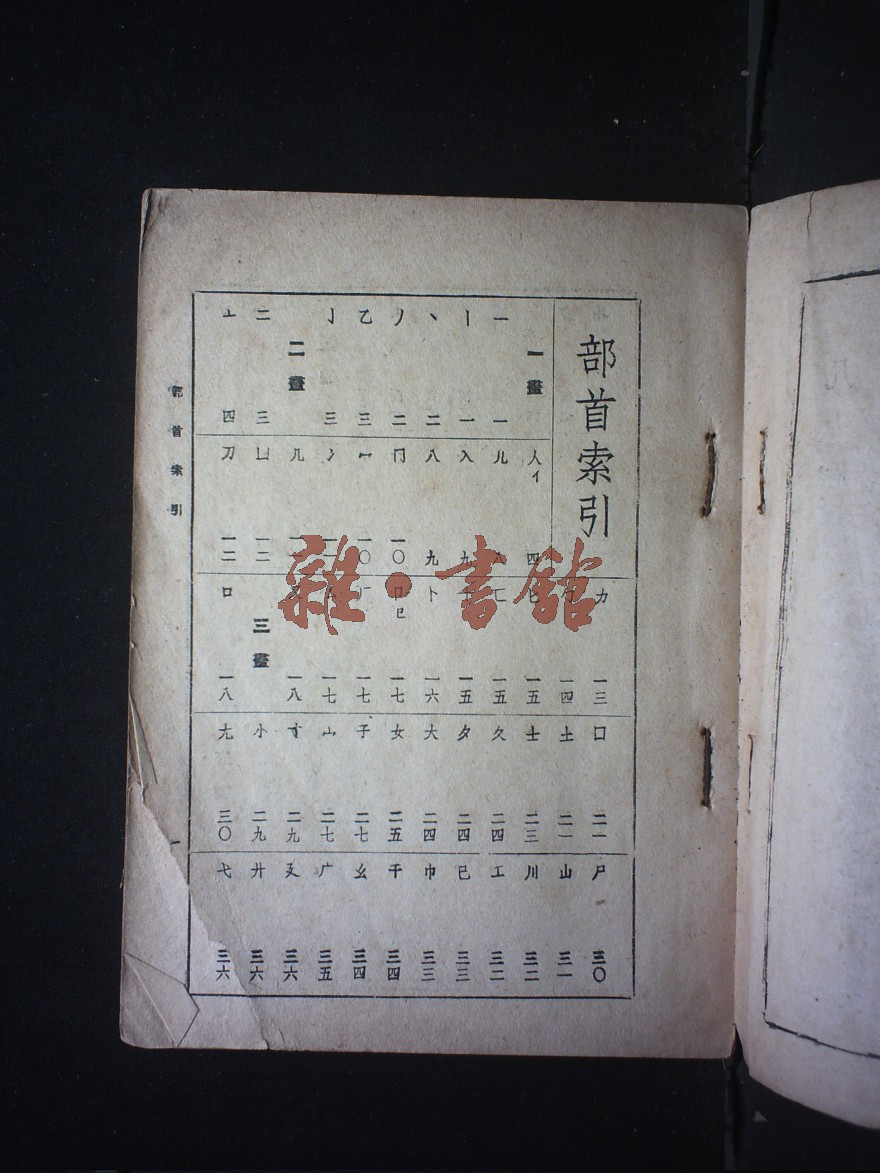 部首索引
一畫
一 一
丨 一
丶 二
丿 二
乙 三
亅 三
二畫
二 三
亠 四
人亻 四
儿
入 九
八 九
冂 一〇
冖 一〇
冫
几
凵 一二
刀 一二
力 一三
勹 一四
匕 一五
匚 一五
一五
卜 一六
卩㔾 一七
厂 一七
一七
又 一八
三畫
口 一八
囗 二一
土 二一
士 二三
夂 二四
夕 二四
大 二四
女 二五
子 二七
宀 二七
寸 二九
小 二九
尢 三〇
尸 三〇
山 三一
川 三二
工 三二
己 三三
巾 三三
干 三四
幺 三四
广 三五
廴 三六
廾 三六
弋 三六
部首索引
一
雜·書館